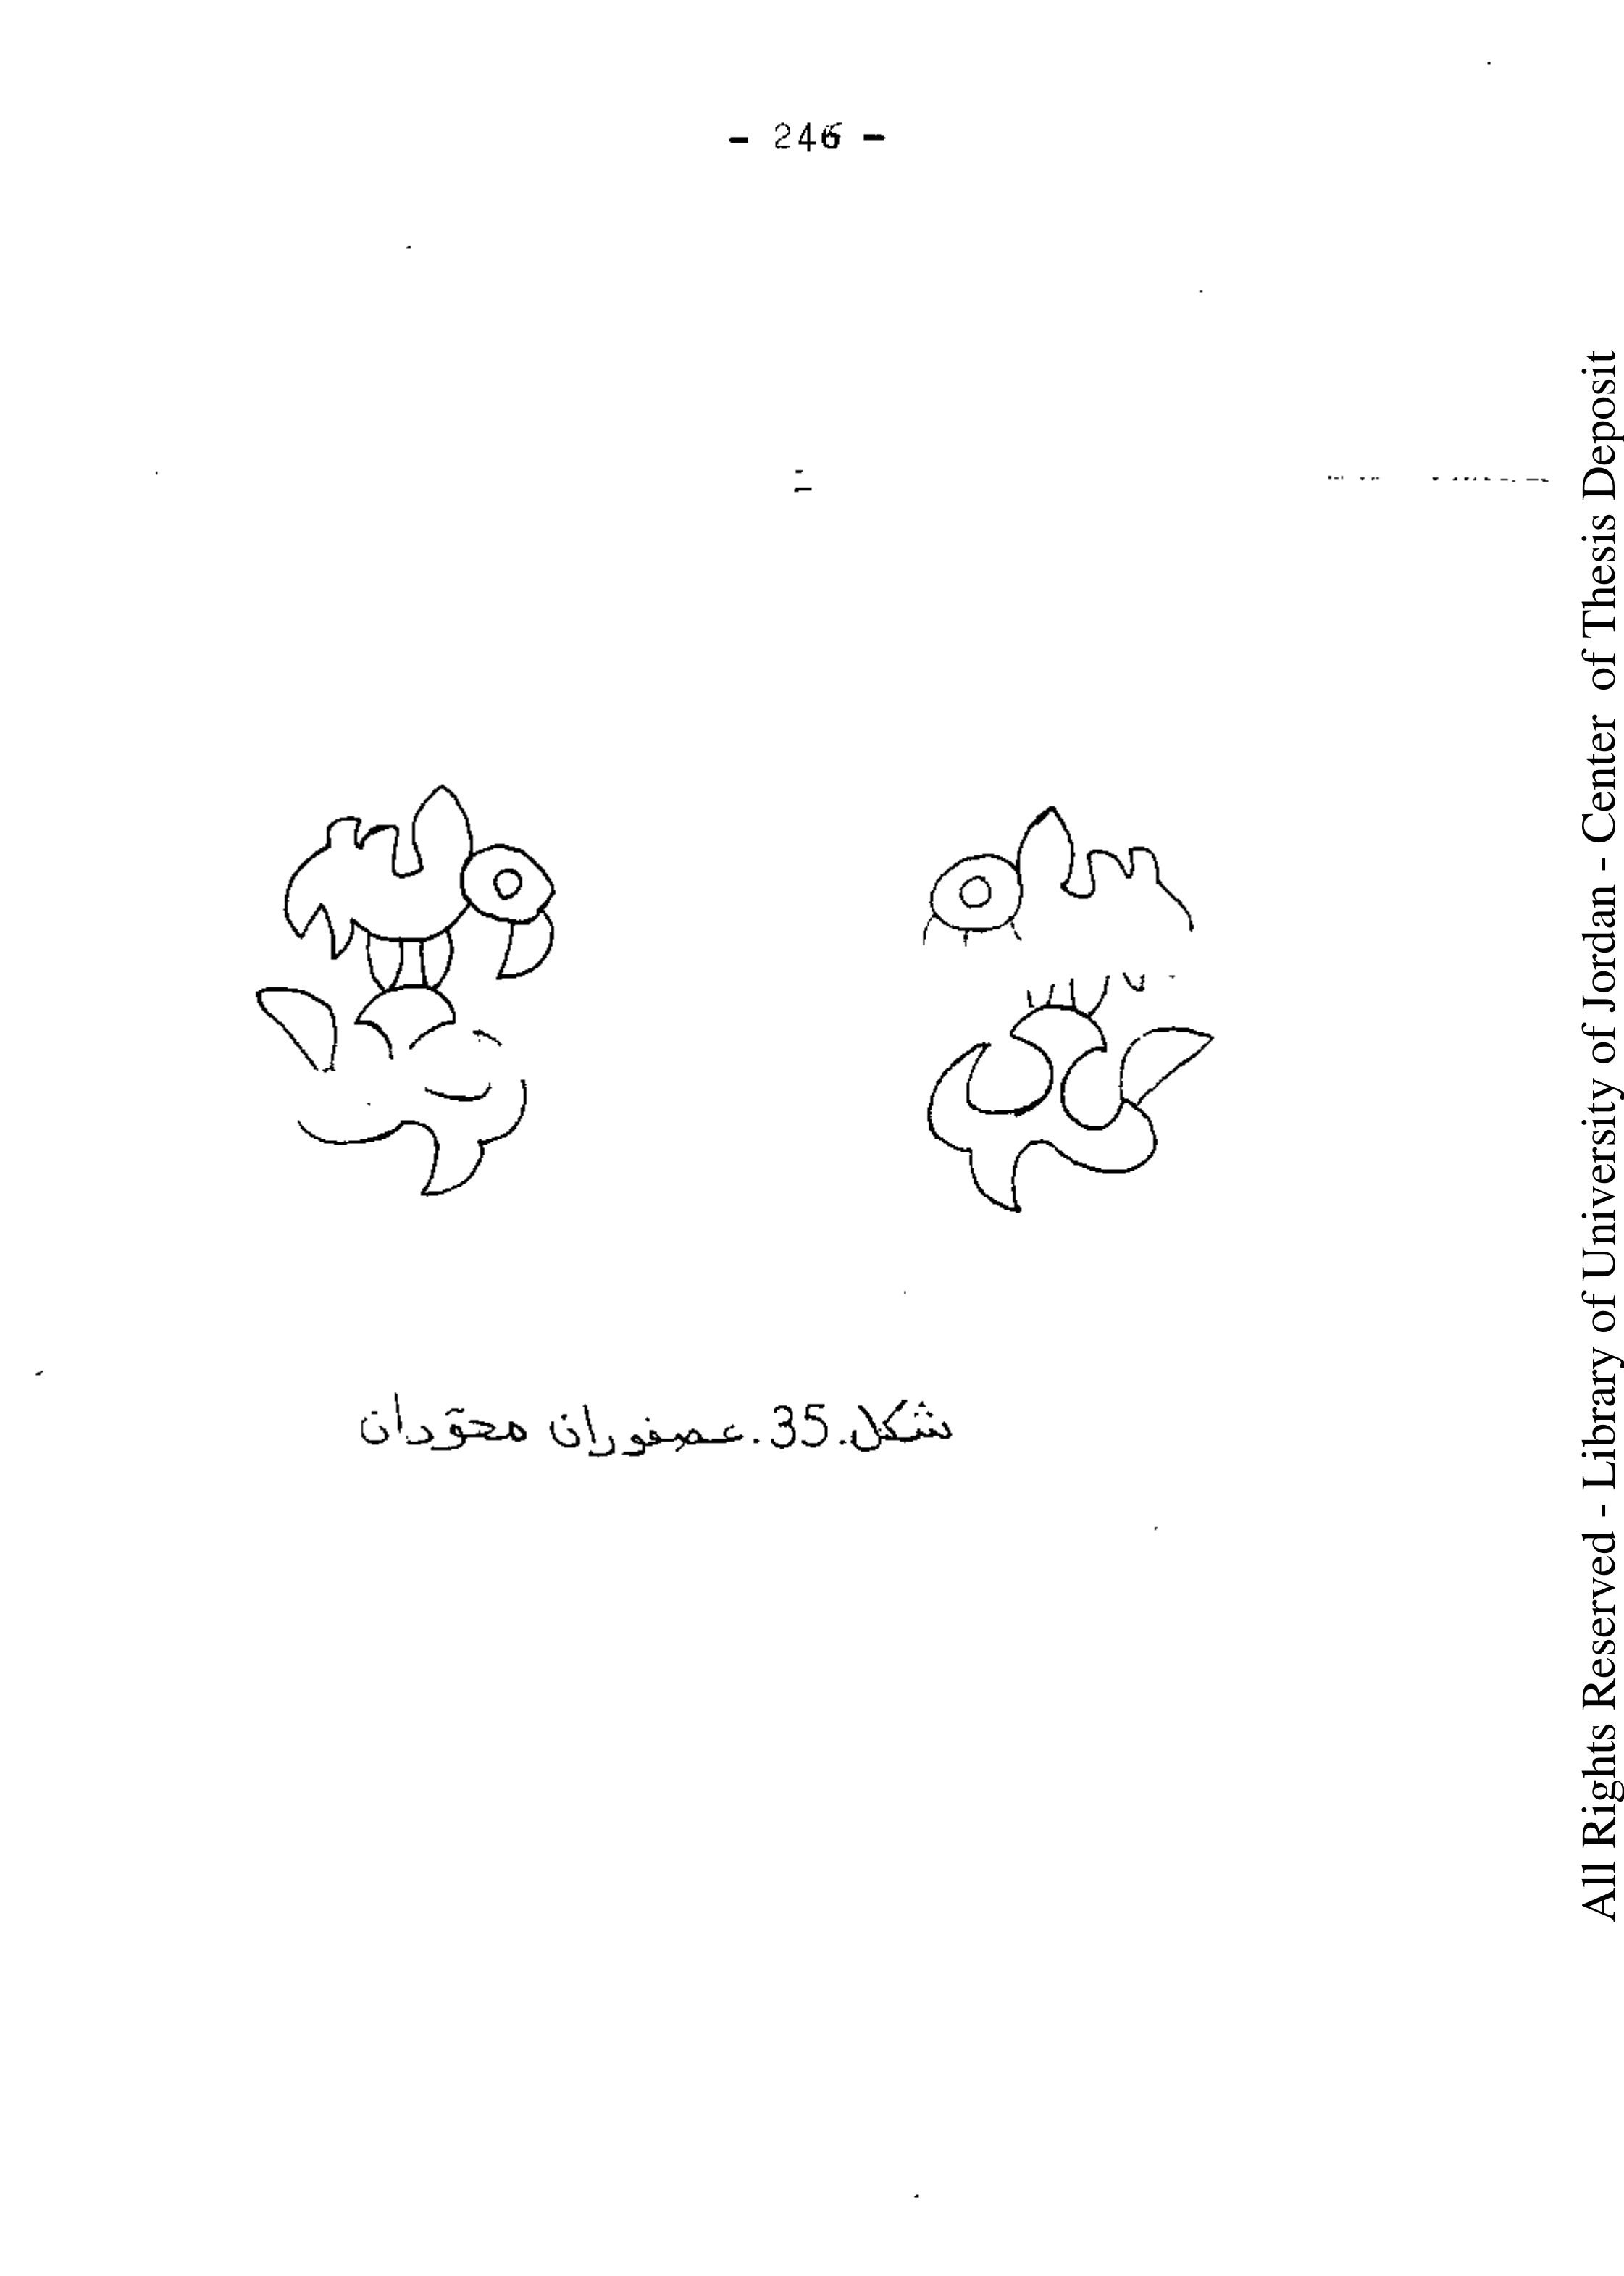 - 246 -
شكل.35.عصفوران محوّران
All Rights Reserved - Library of University of Jordan - Center of Thesis Deposit